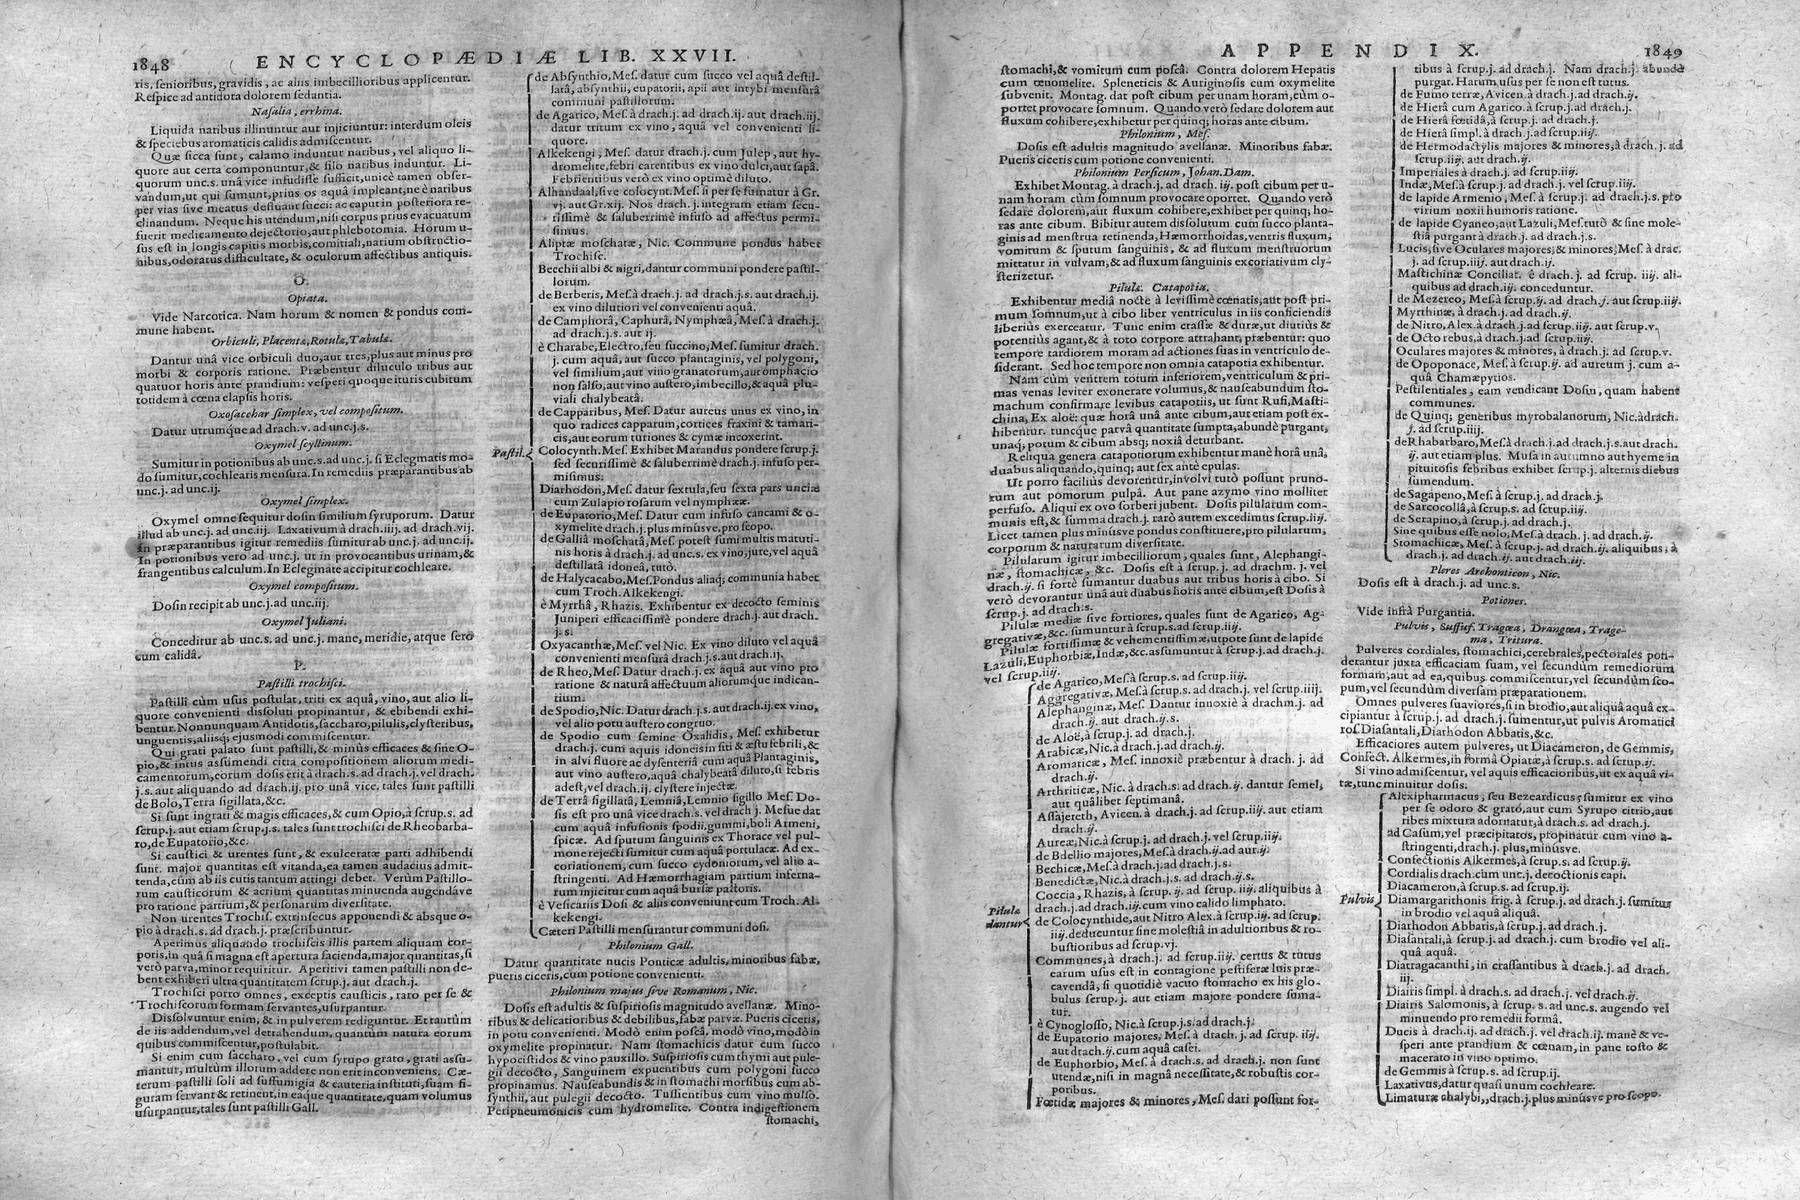 1848 ENCYCLOPÆDIÆ LIB. XXVII.
ris, senioribus, gravidis, ac aliis imbecillioribus applicentur.
Respice ad antidota dolorem sedantia.
Nasalia, errhina.
Liquida naribus illinuntur aut injiciuntur: interdum oleis
& speciebus aromaticis calidis admiscentur.
Quæ sicca sunt, calamo induntur naribus, vel aliquo li-
quore aut certa componuntur, & filo naribus induntur. Li-
quorum unc.s. unâ vice infudisse sufficit, unicè tamen obser-
vandum, ut qui sumunt, prius os aquâ impleant, ne è naribus
per vias sive meatus defluant succi: ac caput in posteriora re-
clinandum. Neque his utendum, nisi corpus prius evacuatum
fuerit medicamento dejectorio, aut phlebotomia. Horum u-
sus est in longis capitis morbis, comitiali, narium obstructio-
nibus, odoratus difficultate, & oculorum affectibus antiquis.
O.
Opiata.
Vide Narcotica. Nam horum & nomen & pondus com-
mune habent.
Orbiculi, Placentæ, Rotulæ, Tabulæ.
Dantur unâ vice orbiculi duo, aut tres, plus aut minus pro
morbi & corporis ratione. Præbentur diluculo tribus aut
quatuor horis ante prandium: vesperi quoque ituris cubitum
totidem à cœna elapsis horis.
Oxosacchar simplex, vel compositum.
Datur utrumque ad drach.v. ad unc.j.s.
Oxymel scyllinum.
Sumitur in potionibus ab unc.s. ad unc.j. si Eclegmatis mo-
do sumitur, cochlearis mensura. In remediis præparantibus ab
unc.j. ad unc.ij.
Oxymel simplex.
Oxymel omne sequitur dosin similium syruporum. Datur
illud ab unc.j. ad unc.iij. Laxativum à drach.iiij. ad drach.vij.
In præparantibus igitur remediis sumitur ab unc.j. ad unc.ij.
In potionibus vero ad unc.j. ut in provocantibus urinam, &
frangentibus calculum. In Eclegmate accipitur cochleare.
Oxymel compositum.
Dosin recipit ab unc.j. ad unc.iij.
Oxymel Juliani.
Conceditur ab unc.s. ad unc.j. mane, meridie, atque serò
cum calidâ.
P.
Pastilli trochisci.
Pastilli cùm usus postulat, triti ex aquâ, vino, aut alio li-
quore convenienti dissoluti propinantur, & ebibendi exhi-
bentur. Nonnunquam Antidotis, saccharo, pilulis, clysteribus,
unguentis, aliisq; ejusmodi commiscentur.
Qui grati palato sunt pastilli, & minùs efficaces & sine O-
pio, & intus assumendi citra compositionem aliorum medi-
camentorum, eorum dosis erit à drach.s. ad drach.j. vel drach.
j.s. aut aliquando ad drach.ij. pro unâ vice. tales sunt pastilli
de Bolo, Terra sigillata, &c.
Si sunt ingrati & magis efficaces, & cum Opio, à scrup.s. ad
scrup.j. aut etiam scrup.j.s. tales sunt trochisci de Rheobarba-
ro, de Eupatorio, &c.
Si caustici & urentes sunt, & exulceratæ parti adhibendi
sunt. major quantitas est vitanda, ea tamen audacius admit-
tenda, cùm ab iis cutis tantum attingi debet. Verùm Pastillo-
rum causticorum & acrium quantitas minuenda augendáve
pro ratione partium, & personarum diversitate.
Non urentes Trochis. extrinsecus apponendi & absque o-
pio à drach.s. ad drach.j. præscribuntur.
Aperimus aliquando trochiscis illis partem aliquam cor-
poris, in quâ si magna est apertura facienda, major quantitas, si
verò parva, minor requiritur. Aperitivi tamen pastilli non de-
bent exhiberi ultra quantitatem scrup.j. aut drach.j.
Trochisci porro omnes, exceptis causticis, raro per se &
Trochiscorum formam servantes, usurpantur.
Dissolvuntur enim, & in pulverem rediguntur. Et tantùm
de iis addendum, vel detrahendum, quantùm natura eorum
quibus commiscentur, postulabit.
Si enim cum saccharo, vel cum syrupo grato, grati assu-
mantur, multùm illorum addere non erit inconveniens. Cæ-
terum pastilli soli ad suffumigia & cauteria instituti, suam fi-
guram servant & retinent, in eaque quantitate, quam volumus
usurpantur, tales sunt pastilli Gall.
Pastil.
de Absynthio, Mes. datur cum succo vel aquâ destil-
latâ, absynthii, eupatorii, apii aut intybi mensurâ
communi pastillorum.
de Agarico, Mes. à drach.j. ad drach.ij. aut drach.iij.
datur tritum ex vino, aquâ vel convenienti li-
quore.
Alkekengi, Mes. datur drach.j. cum Julep, aut hy-
dromelite. febri carentibus ex vino dulci, aut sapâ.
Febrientibus verò ex vino optimè diluto.
Alhandaal, sive colocynt. Mes. si per se sumatur à Gr.
vj. aut Gr.xij. Nos drach.j. integram etiam secu-
rissimè & saluberrimè infuso ad affectus permi-
simus.
Aliptæ moschatæ, Nic. Commune pondus habet
Trochisc.
Becchii albi & nigri, dantur communi pondere pastil-
lorum.
de Berberis, Mes. à drach.j. ad drach.j.s. aut drach.ij.
ex vino dilutiori vel convenienti aquâ.
de Camphorâ, Caphurâ, Nymphæâ, Mes. à drach.j.
ad drach.j.s. aut ij.
è Charabe, Electro, seu succino, Mes. sumitur drach.
j. cum aquâ, aut succo plantaginis, vel polygoni,
vel similium, aut vino granatorum, aut omphacio
non salso, aut vino austero, imbecillo, & aquâ plu-
viali chalybeatâ.
de Capparibus, Mes. Datur aureus unus ex vino, in
quo radices capparum, cortices fraxini & tamari-
cis, aut eorum turiones & cymæ incoxerint.
Colocynth. Mes. Exhibet Marandus pondere scrup.j.
sed securissimè & saluberrimè drach.j. infuso per-
misimus.
Diarhodon, Mes. datur sextula, seu sexta pars unciæ
cum Zulapio rosarum vel nymphææ.
de Eupatorio, Mes. Datur cum infuso cancami & o-
xymelite drach.j. plus minúsve, pro scopo.
de Galliâ moschatâ, Mes. potest sumi multis matuti-
nis horis à drach.j. ad unc.s. ex vino, jure, vel aquâ
destillatâ idoneâ, tutò.
de Halycacabo, Mes. Pondus aliaq; communia habet
cum Troch. Alkekengi.
è Myrrhâ, Rhazis. Exhibentur ex decocto seminis
Juniperi efficacissimè pondere drach.j. aut drach.
j.s.
Oxyacanthæ, Mes. vel Nic. Ex vino diluto vel aquâ
convenienti mensurâ drach.j.s. aut drach.ij.
de Rheo, Mes. Datur drach.j. ex aquâ aut vino pro
ratione & naturâ affectuum aliorumque indican-
tium.
de Spodio, Nic. Datur drach.j.s. aut drach.ij. ex vino,
vel alio potu austero congruo.
de Spodio cum semine Oxalidis, Mes. exhibetur
drach.j. cum aquis idoneis in siti & æstu febrili, &
in alvi fluore ac dysenteriâ cum aquâ Plantaginis,
aut vino austero, aquâ chalybeatâ diluto, si febris
adest, vel drach.ij. clystere injectæ.
de Terrâ sigillatâ, Lemniâ, Lemnio sigillo Mes. Do-
sis est pro unâ vice drach.s. vel drach.j. Mesue dat
cum aquâ infusionis spodii, gummi, boli Armeni,
spicæ. Ad sputum sanguinis ex Thorace vel pul-
mone rejecti sumitur cum aquâ portulacæ. Ad ex-
coriationem, cum succo cydoniorum, vel alio a-
stringenti. Ad Hæmorrhagiam partium interna-
rum injicitur cum aquâ bursæ pastoris.
è Vesicariis Dosi & aliis conveniunt cum Troch. Al-
kekengi.
Cæteri Pastilli mensurantur communi dosi.
Philonium Gall.
Datur quantitate nucis Ponticæ adultis, minoribus fabæ,
pueris ciceris, cum potione convenienti.
Philonium majus sive Romanum, Nic.
Dosis est adultis & suspitiosis magnitudo avellanæ. Mino-
ribus & delicatioribus & debilibus, fabæ parvæ. Pueris ciceris,
in potu convenienti. Modò enim poscâ, modò vino, modò in
oxymelite propinatur. Nam stomachicis datur cum succo
hypocistidos & vino pauxillo. Suspiriosis cum thymi aut pule-
gii decocto, Sanguinem expuentibus cum polygoni succo
propinamus. Nauseabundis & in stomachi morsibus cum ab-
synthii, aut pulegii decocto. Tussientibus cum vino mulso.
Peripneumonicis cum hydromelite. Contra indigestionem
stomachi,
APPENDIX. 1849
stomachi, & vomitum cum poscâ. Contra dolorem Hepatis
cum œnomelite. Spleneticis & Auriginosis cum oxymelite
subvenit. Montag. dat post cibum per unam horam, cùm o-
portet provocare somnum. Quando verò sedare dolorem aut
fluxum cohibere, exhibetur per quinq; horas ante cibum.
Philonium, Mes.
Dosis est adultis magnitudo avellanæ. Minoribus fabæ.
Pueris ciceris cum potione convenienti.
Philonium Persicum, Johan. Dam.
Exhibet Montag. à drach.j. ad drach. iij. post cibum per u-
nam horam cùm somnum provocare oportet. Quando verò
sedare dolorem, aut fluxum cohibere, exhibet per quinq; ho-
ras ante cibum. Bibitur autem dissolutum cum succo planta-
ginis ad menstrua retinenda, Hæmorrhoidas, ventris fluxum,
vomitum & sputum sanguinis, & ad fluxum menstruorum
mittatur in vulvam, & ad fluxum sanguinis excoriativum cly-
sterizetur.
Pilulæ. Catapotia.
Exhibentur mediâ nocte à levissimè cœnatis, aut post pri-
mum somnum, ut à cibo liber ventriculus in iis conficiendis
liberiùs exerceatur. Tunc enim crassæ & duræ, ut diutiùs &
potentiùs agant, & à toto corpore attrahant, præbentur: quo
tempore tardiorem moram ad actiones suas in ventriculo de-
siderant. Sed hoc tempore non omnia catapotia exhibentur.
Nam cùm ventrem totum inferiorem, ventriculum & pri-
mas venas leviter exonerare volumus, & nauseabundum sto-
machum confirmare levibus catapotiis, ut sunt Rufi, Masti-
china, Ex aloë: quæ horâ unâ ante cibum, aut etiam post ex-
hibentur. tuncque parvâ quantitate sumpta, abundè purgant,
unaq; potum & cibum absq; noxiâ deturbant.
Reliqua genera catapotiorum exhibentur manè horâ unâ,
duabus aliquando, quinq; aut sex ante epulas.
Ut porro faciliùs devorentur, involvi tutò possunt pruno-
rum aut pomorum pulpâ. Aut pane azymo vino molliter
perfuso. Aliqui ex ovo sorberi jubent. Dosis pilularum com-
munis est, & summa drach.j. rarò autem excedimus scrup.iiij.
Licet tamen plus minúsve pondus constituere, pro pilularum,
corporum & naturarum diversitate.
Pilularum igitur imbecilliorum, quales sunt, Alephangi-
næ, stomachicæ, &c. Dosis est à scrup.j. ad drachm. j. vel
drach.ij. si fortè sumantur duabus aut tribus horis à cibo. Si
verò devorantur unâ aut duabus horis ante cibum, est Dosis à
scrup.j. ad drach.s.
Pilulæ mediæ sive fortiores, quales sunt de Agarico, Ag-
gregativæ, &c. sumuntur à scrup.s. ad scrup.iiij.
Pilulæ fortissimæ & vehementissimæ, utpote sunt de lapide
Lazuli, Euphorbiæ, Indæ, &c. assumuntur à scrup.j. ad drach.j.
vel scrup.iiij.
Pilulæ dantur
de Agarico, Mes. à scrup.s. ad scrup.iiij.
Aggregativæ, Mes. à scrup.s. ad drach.j. vel scrup.iiij.
Alephanginæ, Mes. Dantur innoxiè à drachm.j. ad
drach.ij. aut drach.ij.s.
de Aloë, à scrup.j. ad drach.j.
Arabicæ, Nic. à drach.j. ad drach.ij.
Aromaticæ, Mes. innoxiè præbentur à drach.j. ad
drach.ij.
Arthriticæ, Nic. à drach.s. ad drach.ij. dantur semel,
aut quâlibet septimanâ.
Assajereth, Avicen. à drach.j. ad scrup.iiij. aut etiam
drach.ij.
Aureæ, Nic. à scrup.j. ad drach.j. vel scrup.iiij.
de Bdellio majores, Mes. à drach.ij. ad aur.ij.
Bechicæ, Mes. à drach.j. ad drach.j.s.
Benedictæ, Nic. à drach.s. ad drach.ij.s.
Coccia, Rhazis, à scrup.ij. ad scrup.iiij. aliquibus à
drach.j. ad drach.iij. cum vino calido limphato.
de Colocynthide, aut Nitro Alex. à scrup.iij. ad scrup.
iiij. deducuntur sine molestiâ in adultioribus & ro-
bustioribus ad scrup.vj.
Communes, à drach.j. ad scrup.iiij. certus & tutus
earum usus est in contagione pestiferæ luis præ-
cavendâ, si quotidiè vacuo stomacho ex his glo-
bulus scrup.j. aut etiam majore pondere suma-
tur.
è Cynoglosso, Nic. à scrup.j.s. ad drach.j.
de Eupatorio majores, Mes. à drach.j. ad scrup.iiij.
aut drach.ij. cum aquâ casei.
de Euphorbio, Mes. à drach.s. ad drach.j. non sunt
utendæ, nisi in magnâ necessitate, & robustis cor-
poribus.
Fœtidæ majores & minores, Mes. dari possunt for-
tibus à scrup.j. ad drach.j. Nam drach.j. abundè
purgat. Harum usus per se non est tutus.
de Fumo terræ, Avicen. à drach.j. ad drach.ij.
de Hierâ cum Agarico à scrup.j. ad drach.j.
de Hierâ fœtidâ, à scrup.j. ad drach.j.
de Hierâ simpl. à drach.j. ad scrup.iiij.
de Hermodactylis majores & minores, à drach.j. ad
scrup.iiij. aut drach.ij.
Imperiales à drach.j. ad scrup.iiij.
Indæ, Mes. à scrup.j. ad drach.j. vel scrup.iiij.
de lapide Armenio, Mes. à scrup.j. ad drach.j.s. pro
virium noxii humoris ratione.
de lapide Cyaneo, aut Lazuli, Mes. tutò & sine mole-
stiâ purgant à drach.j. ad drach.j.s.
Lucis, sive Oculares majores, & minores, Mes. à drac.
j. ad scrup.iiij. aut drach.ij.
Mastichinæ Conciliat. è drach.j. ad scrup. iiij. ali-
quibus ad drach.iij. conceduntur.
de Mezereo, Mes. à scrup.ij. ad drach.j. aut scrup.iiij.
Myrthinæ, à drach.j. ad drach.ij.
de Nitro, Alex. à drach.j. ad scrup.iiij. aut scrup.v.
de Octo rebus, à drach.j. ad scrup.iiij.
Oculares majores & minores, à drach.j. ad scrup.v.
de Opoponace, Mes. à scrup.ij. ad aureum j. cum a-
quâ Chamæpytios.
Pestilentiales, eam vendicant Dosin, quam habent
communes.
de Quinq; generibus myrobalanorum, Nic. à drach.
j. ad scrup.iiij.
de Rhabarbaro, Mes. à drach.j. ad drach.j.s. aut drach.
ij. aut etiam plus. Musa in autumno aut hyeme in
pituitosis febribus exhibet scrup.j. alternis diebus
sumendum.
de Sagapeno, Mes. à scrup.j. ad drach.j.
de Sarcocollâ, à scrup.s. ad scrup.iiij.
de Serapino, à scrup.j. ad drach.j.
Sine quibus esse nolo, Mes. à drach.j. ad drach.ij.
Stomachicæ, Mes. à scrup.j. ad drach.ij. aliquibus, à
drach.j. ad drach.ij. aut drach.iij.
Pleres Archonticon, Nic.
Dosis est à drach.j. ad unc.s.
Potiones.
Vide infrà Purgantia.
Pulvis, Suffuf. Tragœa, Drangœa, Trage-
ma, Tritura.
Pulveres cordiales, stomachici, cerebrales, pectorales poti-
derantur juxta efficaciam suam, vel secundùm remediorum
formam, aut ad ea, quibus commiscentur, vel secundùm sco-
pum, vel secundùm diversam præparationem.
Omnes pulveres suaviores, si in brodio, aut aliquâ aquâ ex-
cipiantur à scrup.j. ad drach.j. sumentur, ut pulvis Aromatici
ros. Diasantali, Diarhodon Abbatis, &c.
Efficaciores autem pulveres, ut Diacameron, de Gemmis,
Confect. Alkermes, in formâ Opiatæ, à scrup.s. ad scrup.ij.
Si vino admiscentur, vel aquis efficacioribus, ut ex aquâ vi-
tæ, tunc minuitur dosis.
Pulvis
Alexipharmacus, seu Bezeardicus, sumitur ex vino
per se odoro & grato, aut cum Syrupo citrio, aut
ribes mixtura adornatur, à drach.s. ad drach.j.
ad Casum, vel præcipitatos, propinatur cum vino a-
stringenti, drach.j. plus, minúsve.
Confectionis Alkermes, à scrup.s. ad scrup.ij.
Cordialis drach. cùm unc.j. decoctionis capi.
Diacameron, à scrup.s. ad scrup.ij.
Diamargarithonis frig. à scrup.j. ad drach.j. sumitur
in brodio vel aquâ aliquâ.
Diarhodon Abbatis, à scrup.j. ad drach.j.
Diasantali, à scrup.j. ad drach.j. cum brodio vel ali-
quâ aquâ.
Diatragacanthi, in crassantibus à drach.j. ad drach.
iij.
Diairis simpl. à drach.s. ad drach.j. vel drach.ij.
Diairis Salomonis, à scrup.s. ad unc.s. augendo vel
minuendo pro remedii formâ.
Ducis à drach.ij. ad drach.j. vel drach.ij. manè & ve-
speri ante prandium & cœnam, in pane tosto &
macerato in vino optimo.
de Gemmis à scrup.s. ad scrup.ij.
Laxativus, datur quasi unum cochleare.
Limaturæ chalybi,, drach.j. plus minúsve pro scopo.